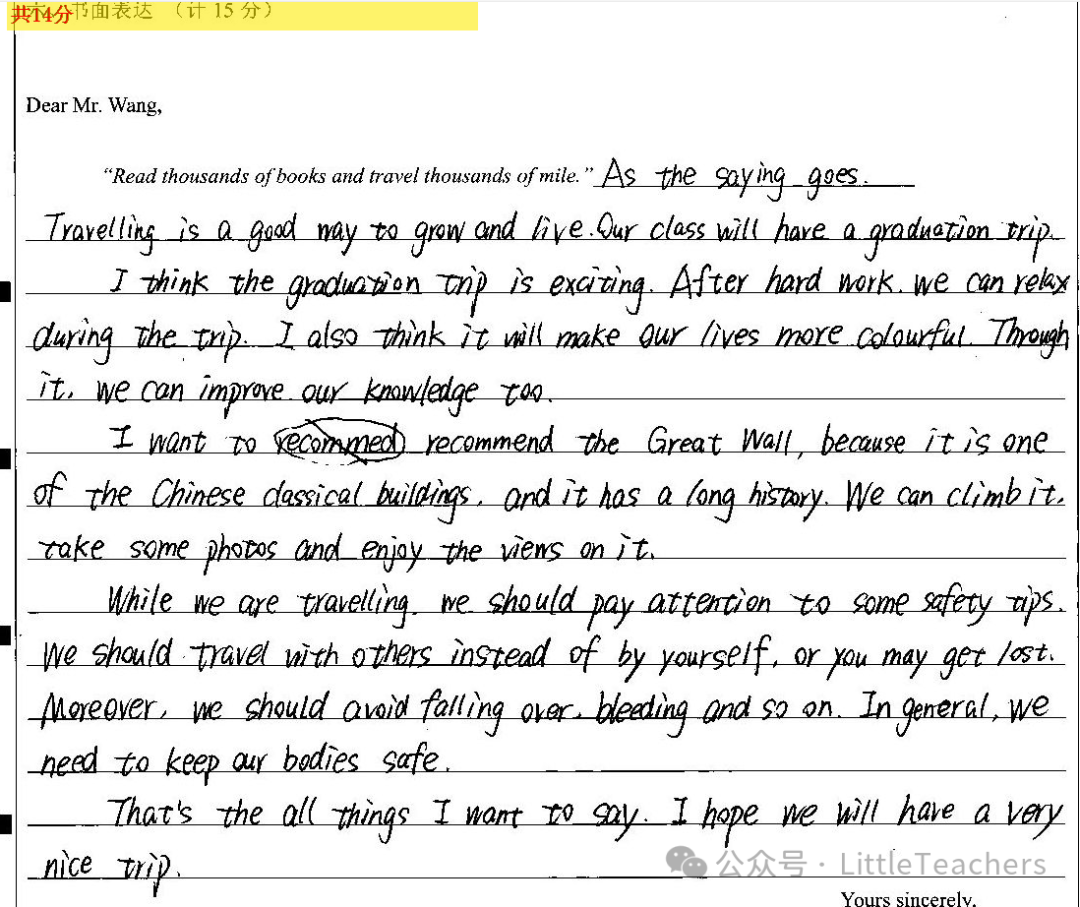 共14分 书面表达 （计 15 分）
Dear Mr. Wang,
"Read thousands of books and travel thousands of mile." As the saying goes.
Travelling is a good way to grow and live. Our class will have a graduation trip.
I think the graduation trip is exciting. After hard work, we can relax
during the trip. I also think it will make our lives more colourful. Through
it, we can improve our knowledge too.
I want to recommed recommend the Great Wall, because it is one
of the Chinese classical buildings, and it has a long history. We can climb it,
take some photos and enjoy the views on it.
While we are travelling, we should pay attention to some safety tips.
We should travel with others instead of by yourself, or you may get lost.
Moreover, we should avoid falling over, bleeding and so on. In general, we
need to keep our bodies safe.
That's the all things I want to say. I hope we will have a very
nice trip.
公众号 · LittleTeachers
Yours sincerely,